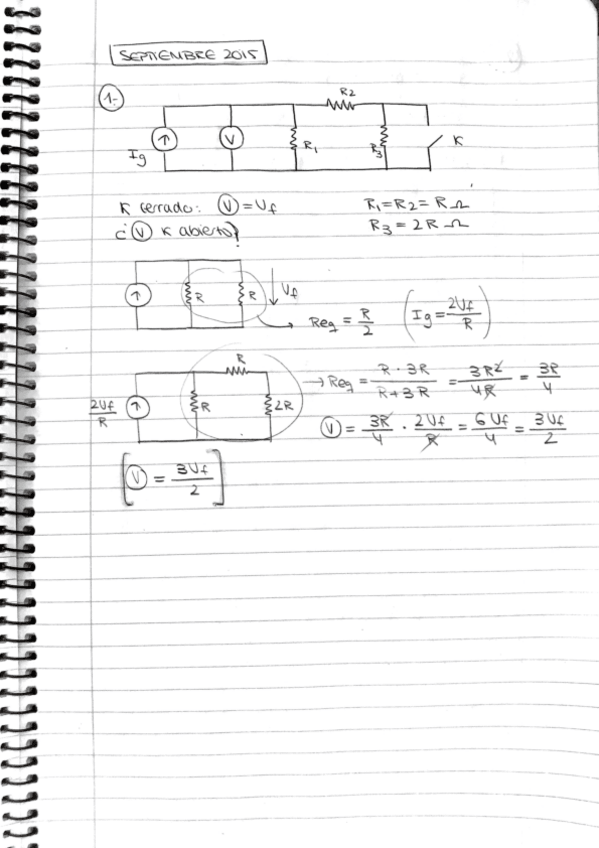 SEPTIEMBRE 2015
1.-
R2
Ig V R1 R3 K
K cerrado: V = Uf R1 = R2 = R Ω
¿ V K abierto? R3 = 2R Ω
R R Uf
Req = R/2 (Ig = 2Uf/R)
R
2Uf/R R 2R → Req = R · 3R / R + 3R = 3R²/4R = 3R/4
V = 3R/4 · 2Uf/R = 6Uf/4 = 3Uf/2
[V = 3Uf/2]